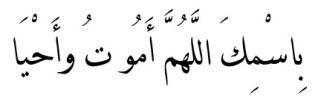 بِاسْمِكَ اللَّهُمَّ أَمُوتُ وَأَحْيَا